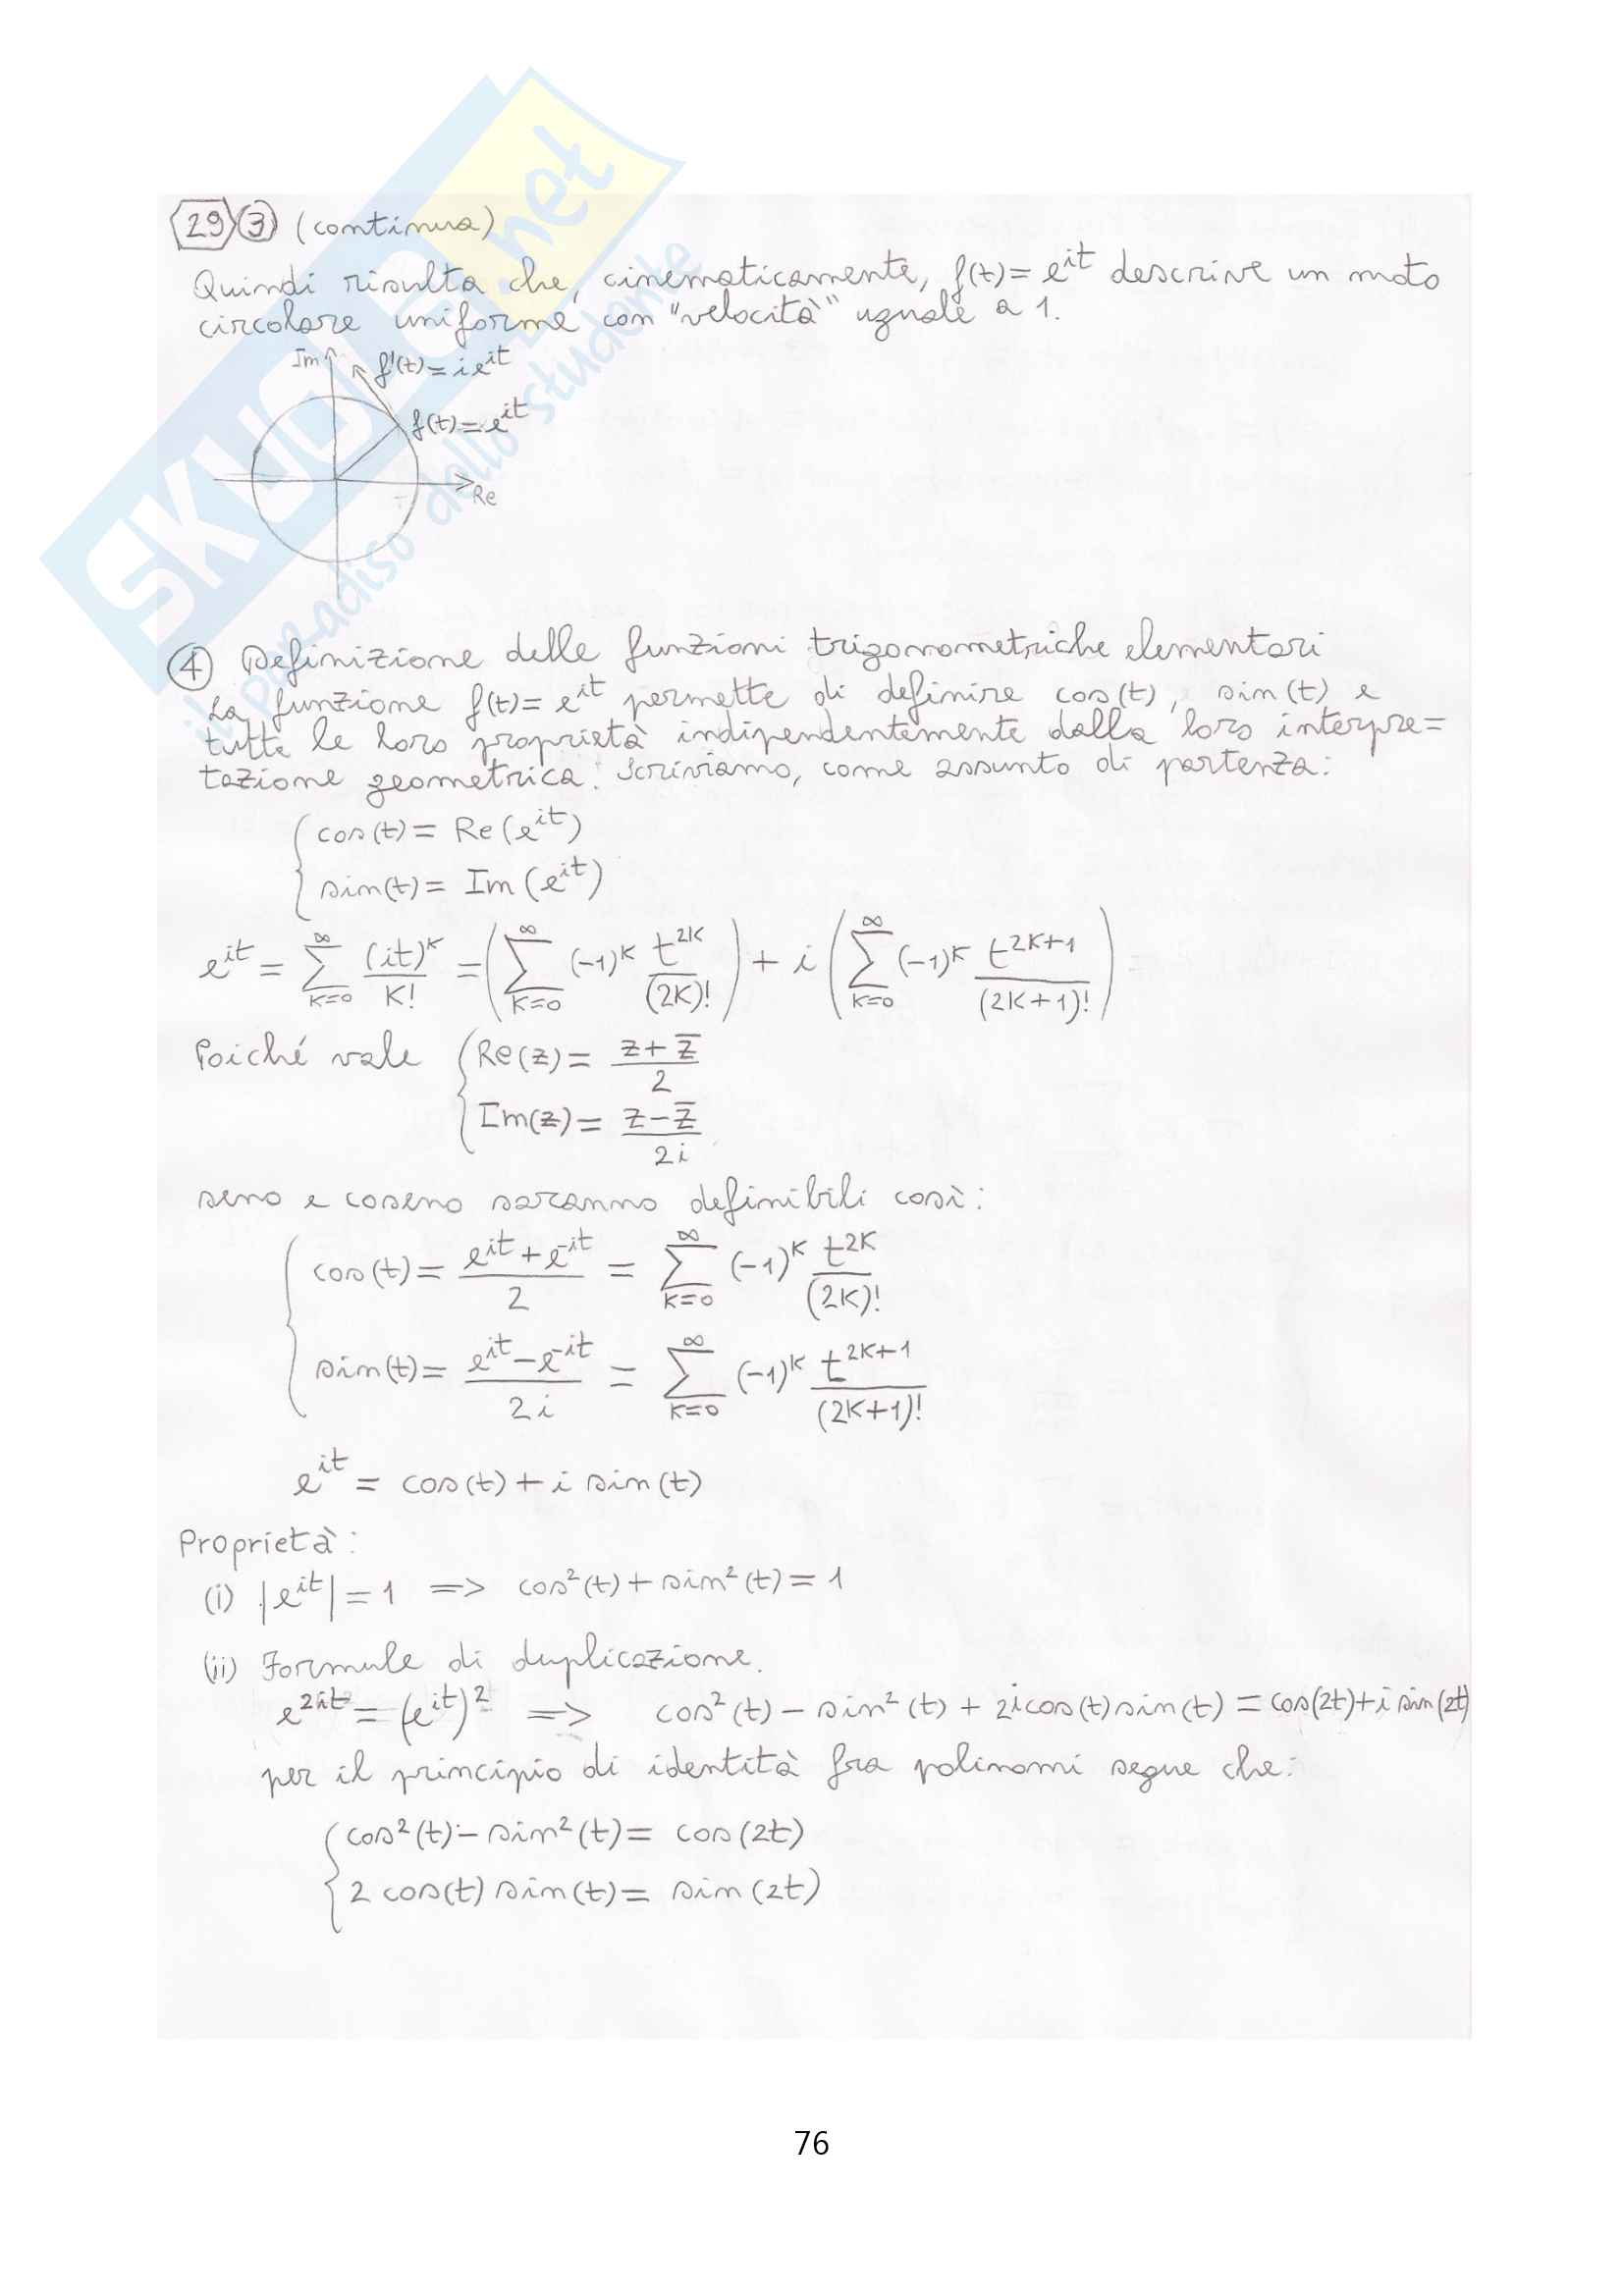 29 3 (continua)
Quindi risulta che, cinematicamente, f(t) = e^{it} descrive un moto
circolare uniforme con "velocità" uguale a 1.
Im f'(t) = i e^{it}
f(t) = e^{it}
Re
SKUOLA.net
il paradiso dello studente
4 Definizione delle funzioni trigonometriche elementari
La funzione f(t) = e^{it} permette di definire cos(t), sin(t) e
tutte le loro proprietà indipendentemente dalla loro interpre=
tazione geometrica. Scriviamo, come assunto di partenza:
cos(t) = Re(e^{it})
sin(t) = Im(e^{it})
e^{it} = ∑_{k=0}^{∞} (it)^k / k! = (∑_{k=0}^{∞} (-1)^k t^{2k} / (2k)!) + i (∑_{k=0}^{∞} (-1)^k t^{2k+1} / (2k+1)!)
Poiché vale { Re(z) = (z + z̄) / 2
Im(z) = (z - z̄) / 2i
seno e coseno saranno definibili così:
cos(t) = (e^{it} + e^{-it}) / 2 = ∑_{k=0}^{∞} (-1)^k t^{2k} / (2k)!
sin(t) = (e^{it} - e^{-it}) / 2i = ∑_{k=0}^{∞} (-1)^k t^{2k+1} / (2k+1)!
e^{it} = cos(t) + i sin(t)
Proprietà:
(i) |e^{it}| = 1 => cos²(t) + sin²(t) = 1
(ii) Formule di duplicazione.
e^{2it} = (e^{it})² => cos²(t) - sin²(t) + 2i cos(t) sin(t) = cos(2t) + i sin(2t)
per il principio di identità fra polinomi segue che:
cos²(t) - sin²(t) = cos(2t)
2 cos(t) sin(t) = sin(2t)
76